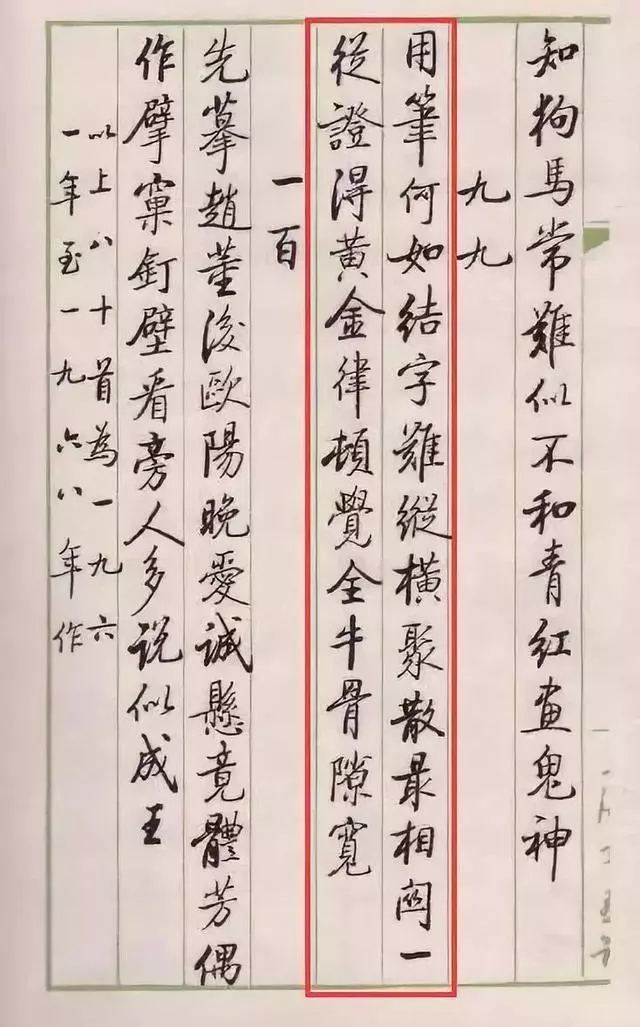 知狗馬常難似不和青紅畫鬼神
九九
用筆何如結字難縱橫聚散最相関一
從證得黃金律頓覺全牛骨隙寬
一百
先摹趙董後歐陽晚愛誠懸竟體芳偶
作擘窠釘壁看旁人多説似成王
以上八十首為一九六
一年至一九六八年作